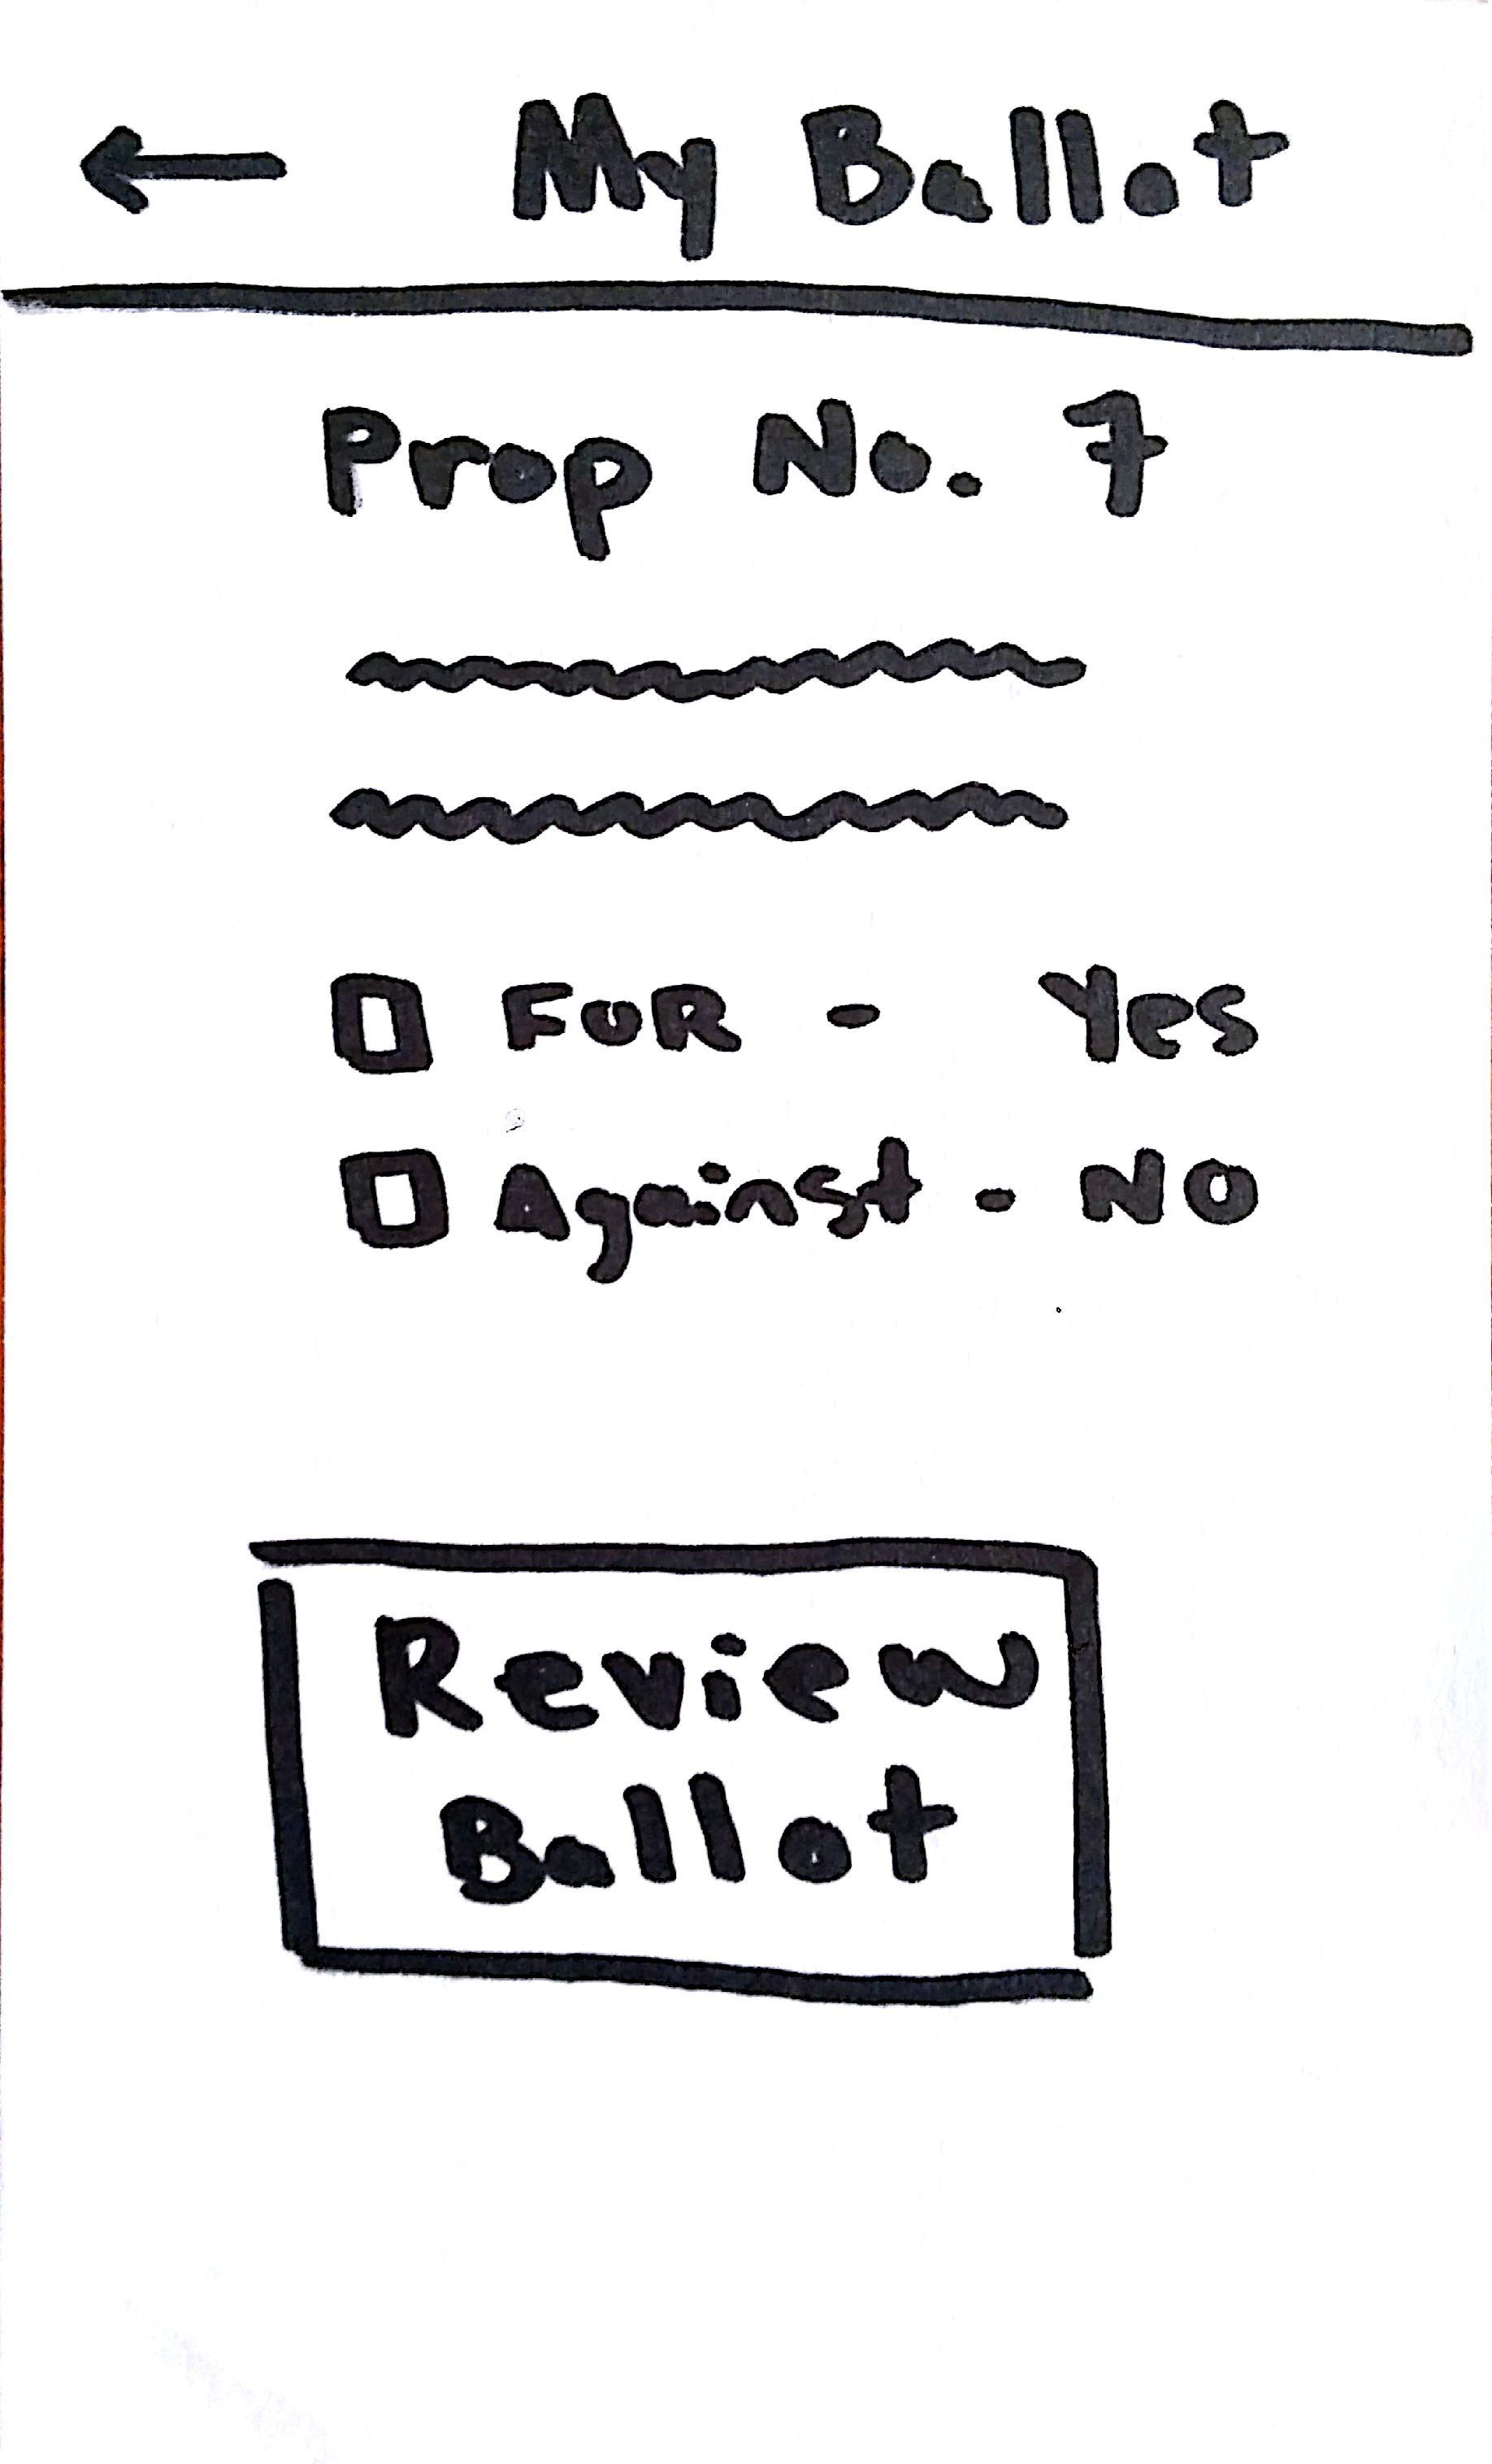 My Ballot
Prop No. 7
FOR - Yes
Against - NO
Review
Ballot